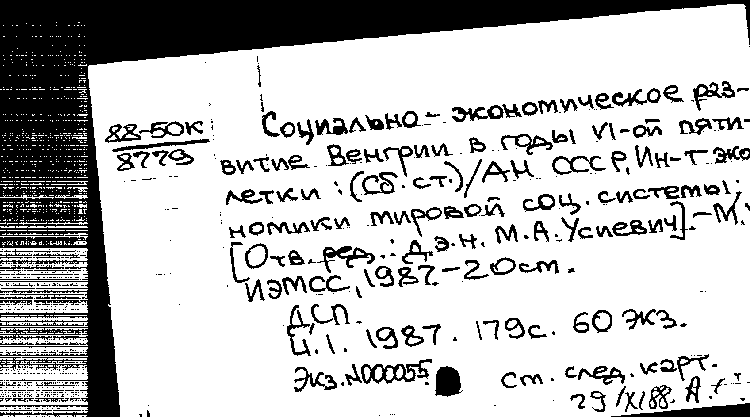 88-50К
8779
Социально-экономическое раз-
витие Венгрии в годы VI-ой пяти-
летки : (Сб. ст.) / АН СССР, Ин-т эко
номики мировой соц. системы;
[Отв. ред.: д.э.н. М.А. Усиевич]. - М.:
ИЭМСС, 1987. - 20см.
ДСП.
Ч.1. 1987. 179с. 60 экз.
Экз. №000055
см. след. карт.
29/XI88. А.